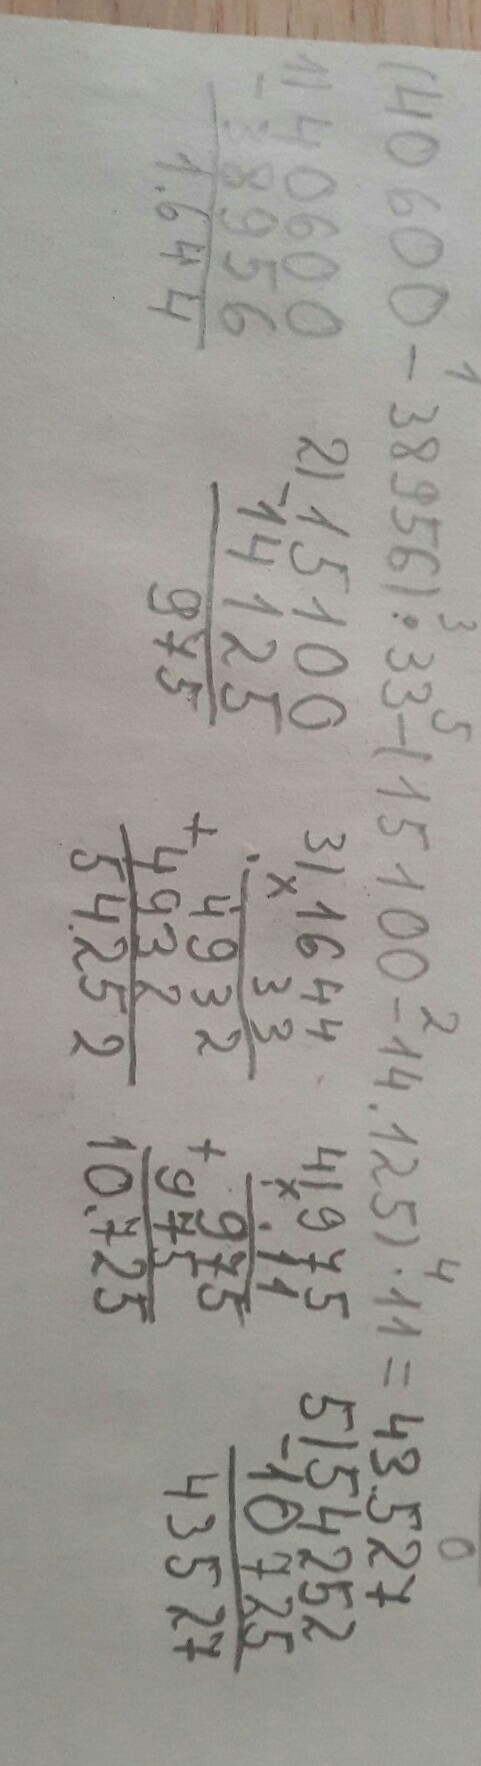 1 3 5 2 4 0
(40600-38956):33-(15100-14.125)·11=43.527
1) 40600
-38956
1.644
2) 15100
-14125
975
3) 1644
x 33
4932
+4932
54.252
4) 975
x 11
975
+975
10.725
5) 54252
-10725
43527